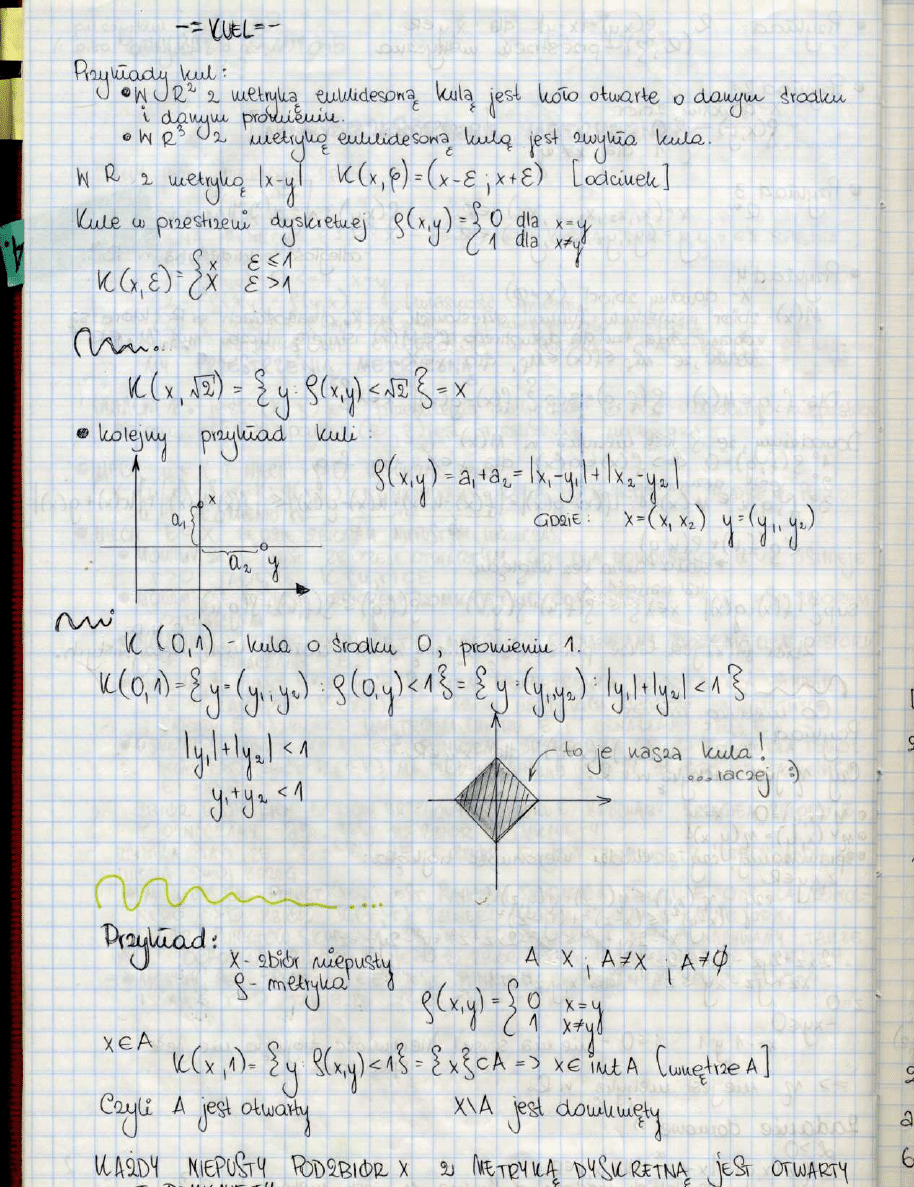 -= KULE =-
Przykłady kul:
• W R² z metryką euklidesową kulą jest koło otwarte o danym środku
i danym promieniu.
• W R³ z metryką euklidesową kulą jest zwykła kula.
W R z metryką |x-y| K(x,ρ)=(x-ε ; x+ε) [odcinek]
Kule w przestrzeni dyskretnej ρ(x,y)={ 0 dla x=y
1 dla x≠y
K(x,ε)={ x ε≤1
X ε>1
K(x,√2)={ y: ρ(x,y)<√2 }=X
• kolejny przykład kuli:
ρ(x,y)=a₁+a₂=|x₁-y₁|+|x₂-y₂|
GDZIE: x=(x₁ x₂) y=(y₁, y₂)
x
a₁
a₂ y
K(0,1) - kula o środku 0, promieniu 1.
K(0,1)={ y=(y₁,y₂) : ρ(0,y)<1}={ y=(y₁,y₂) : |y₁|+|y₂|<1 }
|y₁|+|y₂|<1
y₁+y₂<1
to je nasza kula!
...raczej :)
Przykład:
X- zbiór niepusty A X ; A≠X ; A≠∅
ρ- metryka
ρ(x,y)={ 0 x=y
1 x≠y
x∈A
K(x,1)={ y: ρ(x,y)<1}={x}⊂A => x∈intA [wnętrze A]
Czyli A jest otwarty X\A jest domknięty
KAŻDY NIEPUSTY PODZBIÓR X z METRYKĄ DYSKRETNĄ JEST OTWARTY